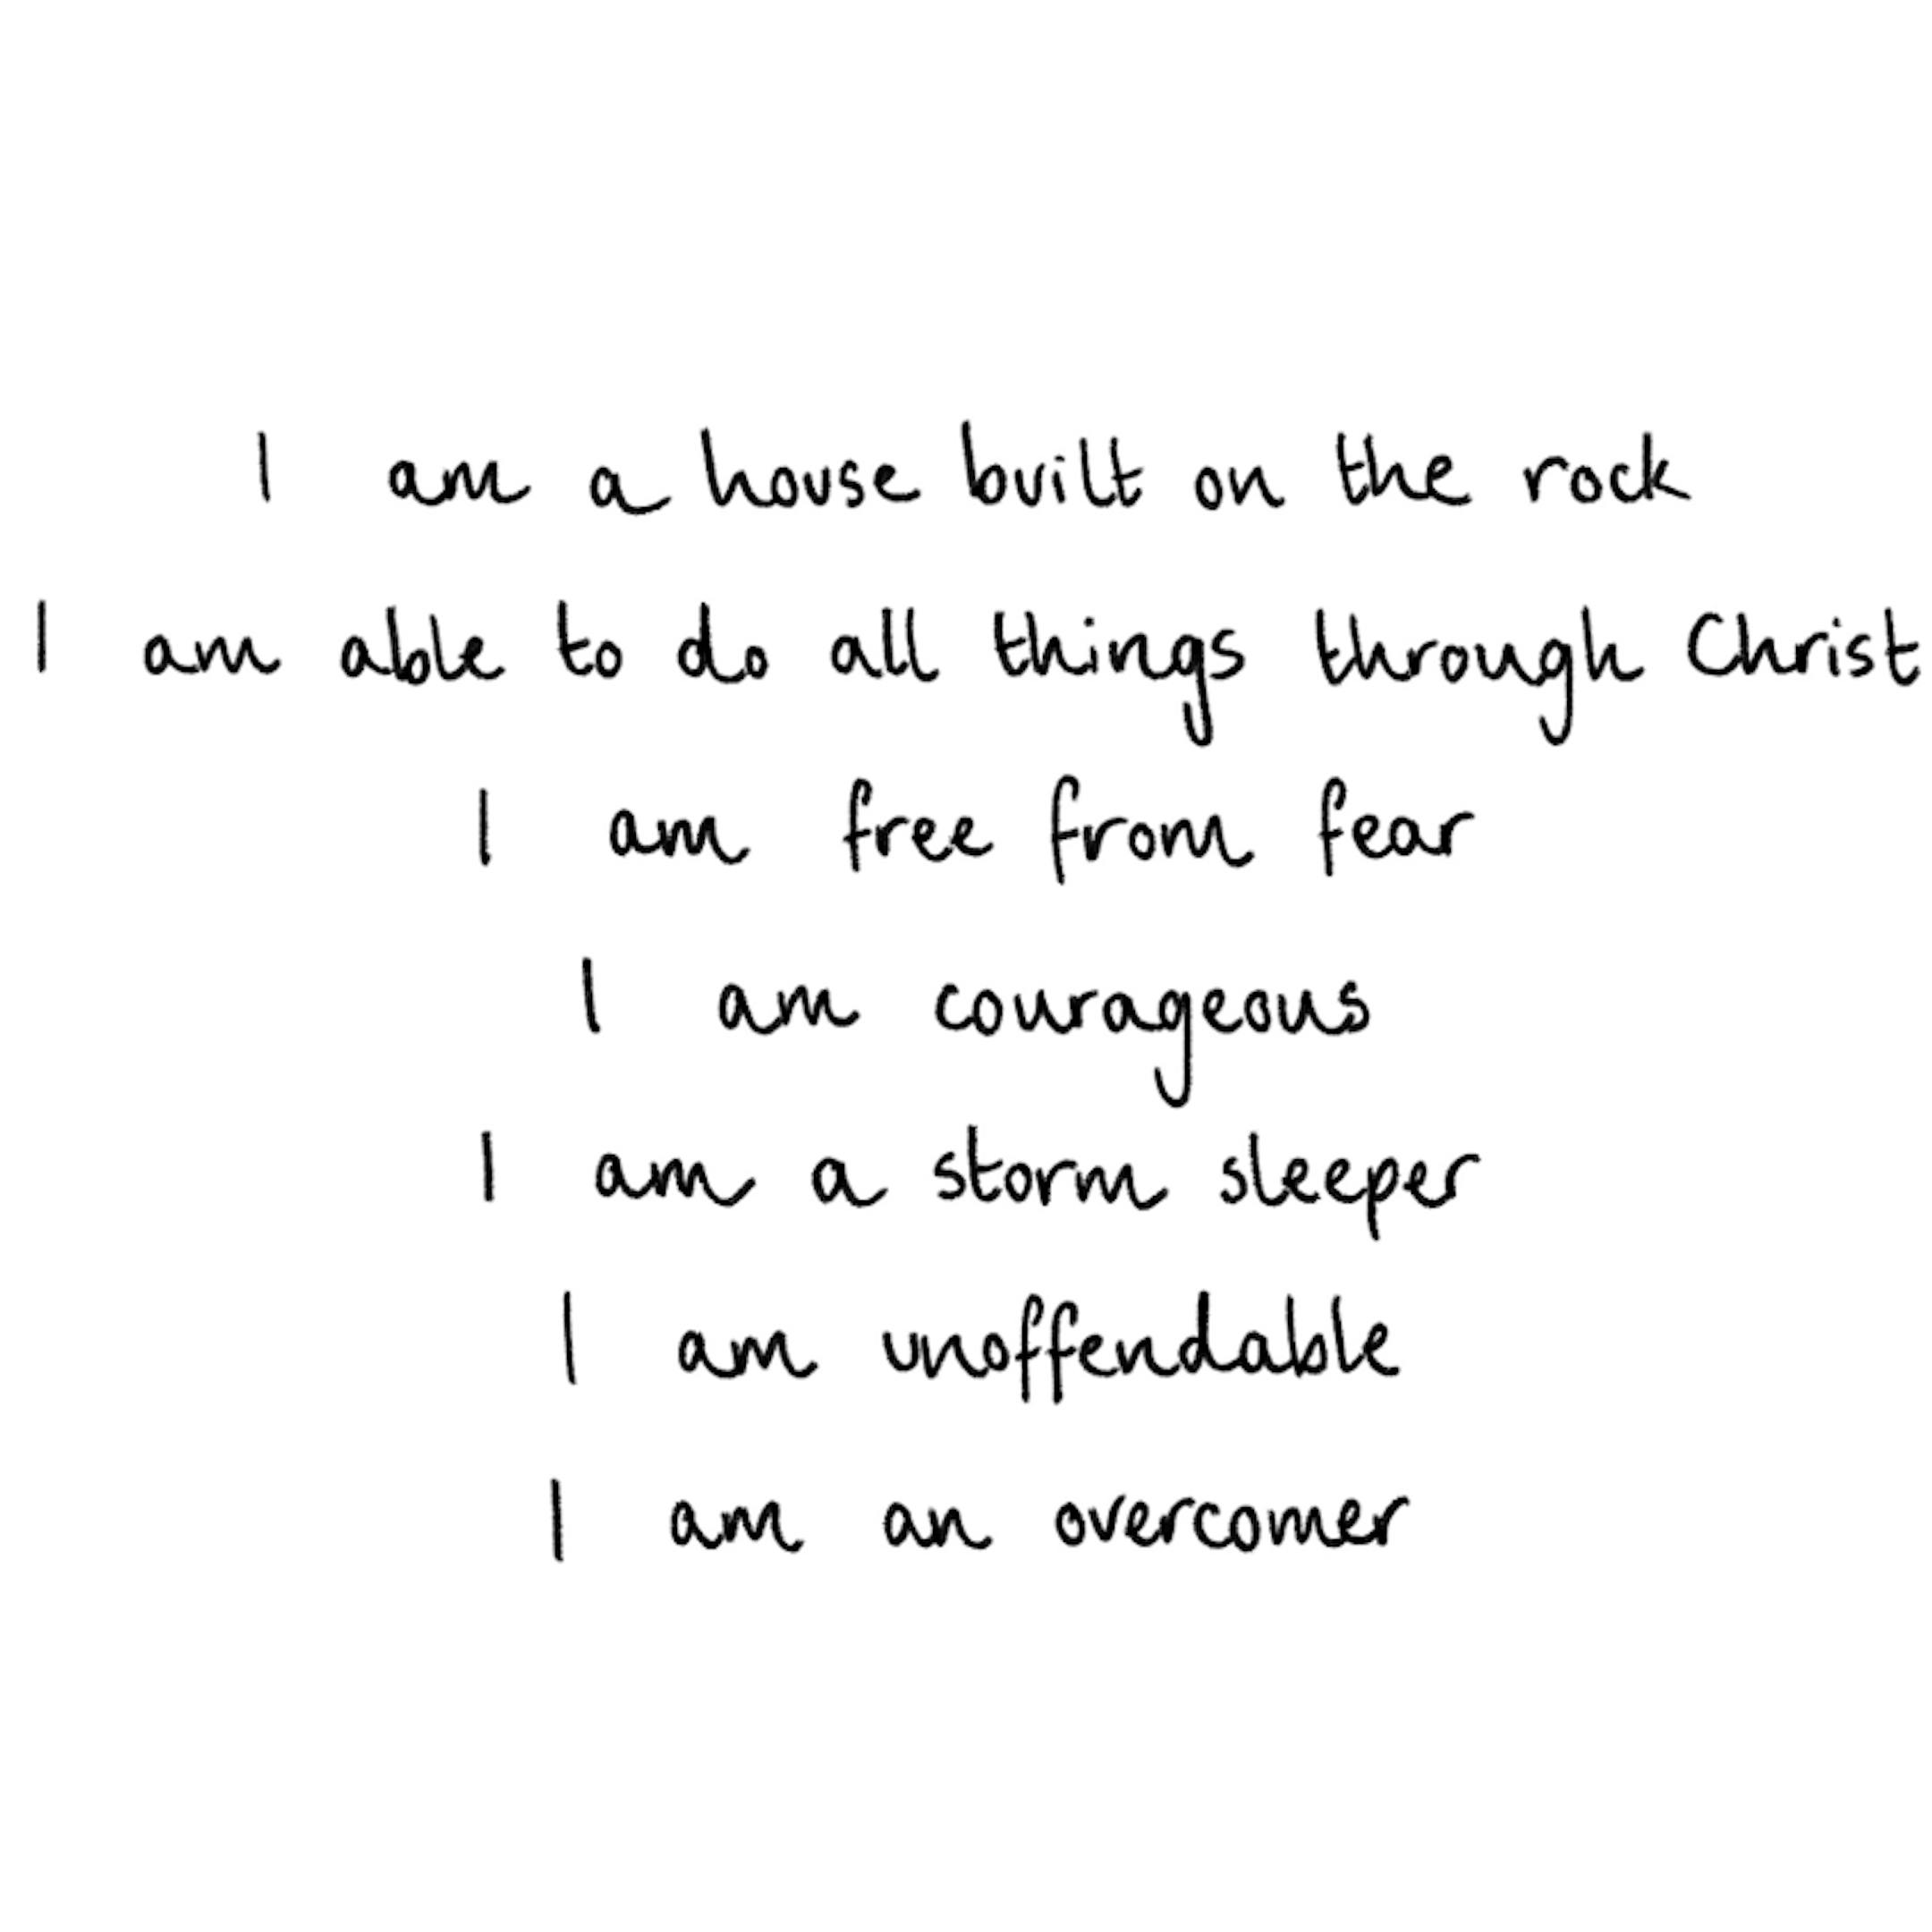 I am a house built on the rock
I am able to do all things through Christ
I am free from fear
I am courageous
I am a storm sleeper
I am unoffendable
I am an overcomer